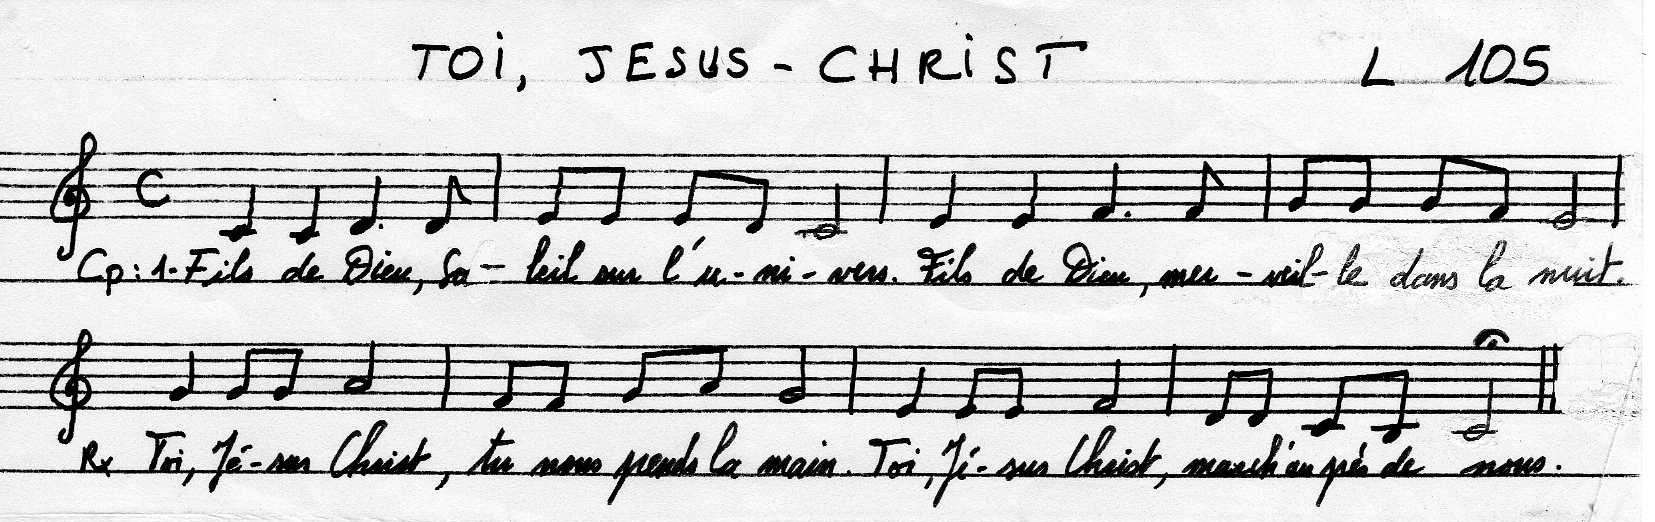 TOI, JESUS - CHRIST L 105
Cp: 1- Fils de Dieu, So - leil sur l'u - ni - vers. Fils de Dieu, mer - veil - le dans la nuit.
Rx Toi, Jé - sus Christ, tu nous prends la main. Toi, Jé - sus Christ, march'auprès de nous.